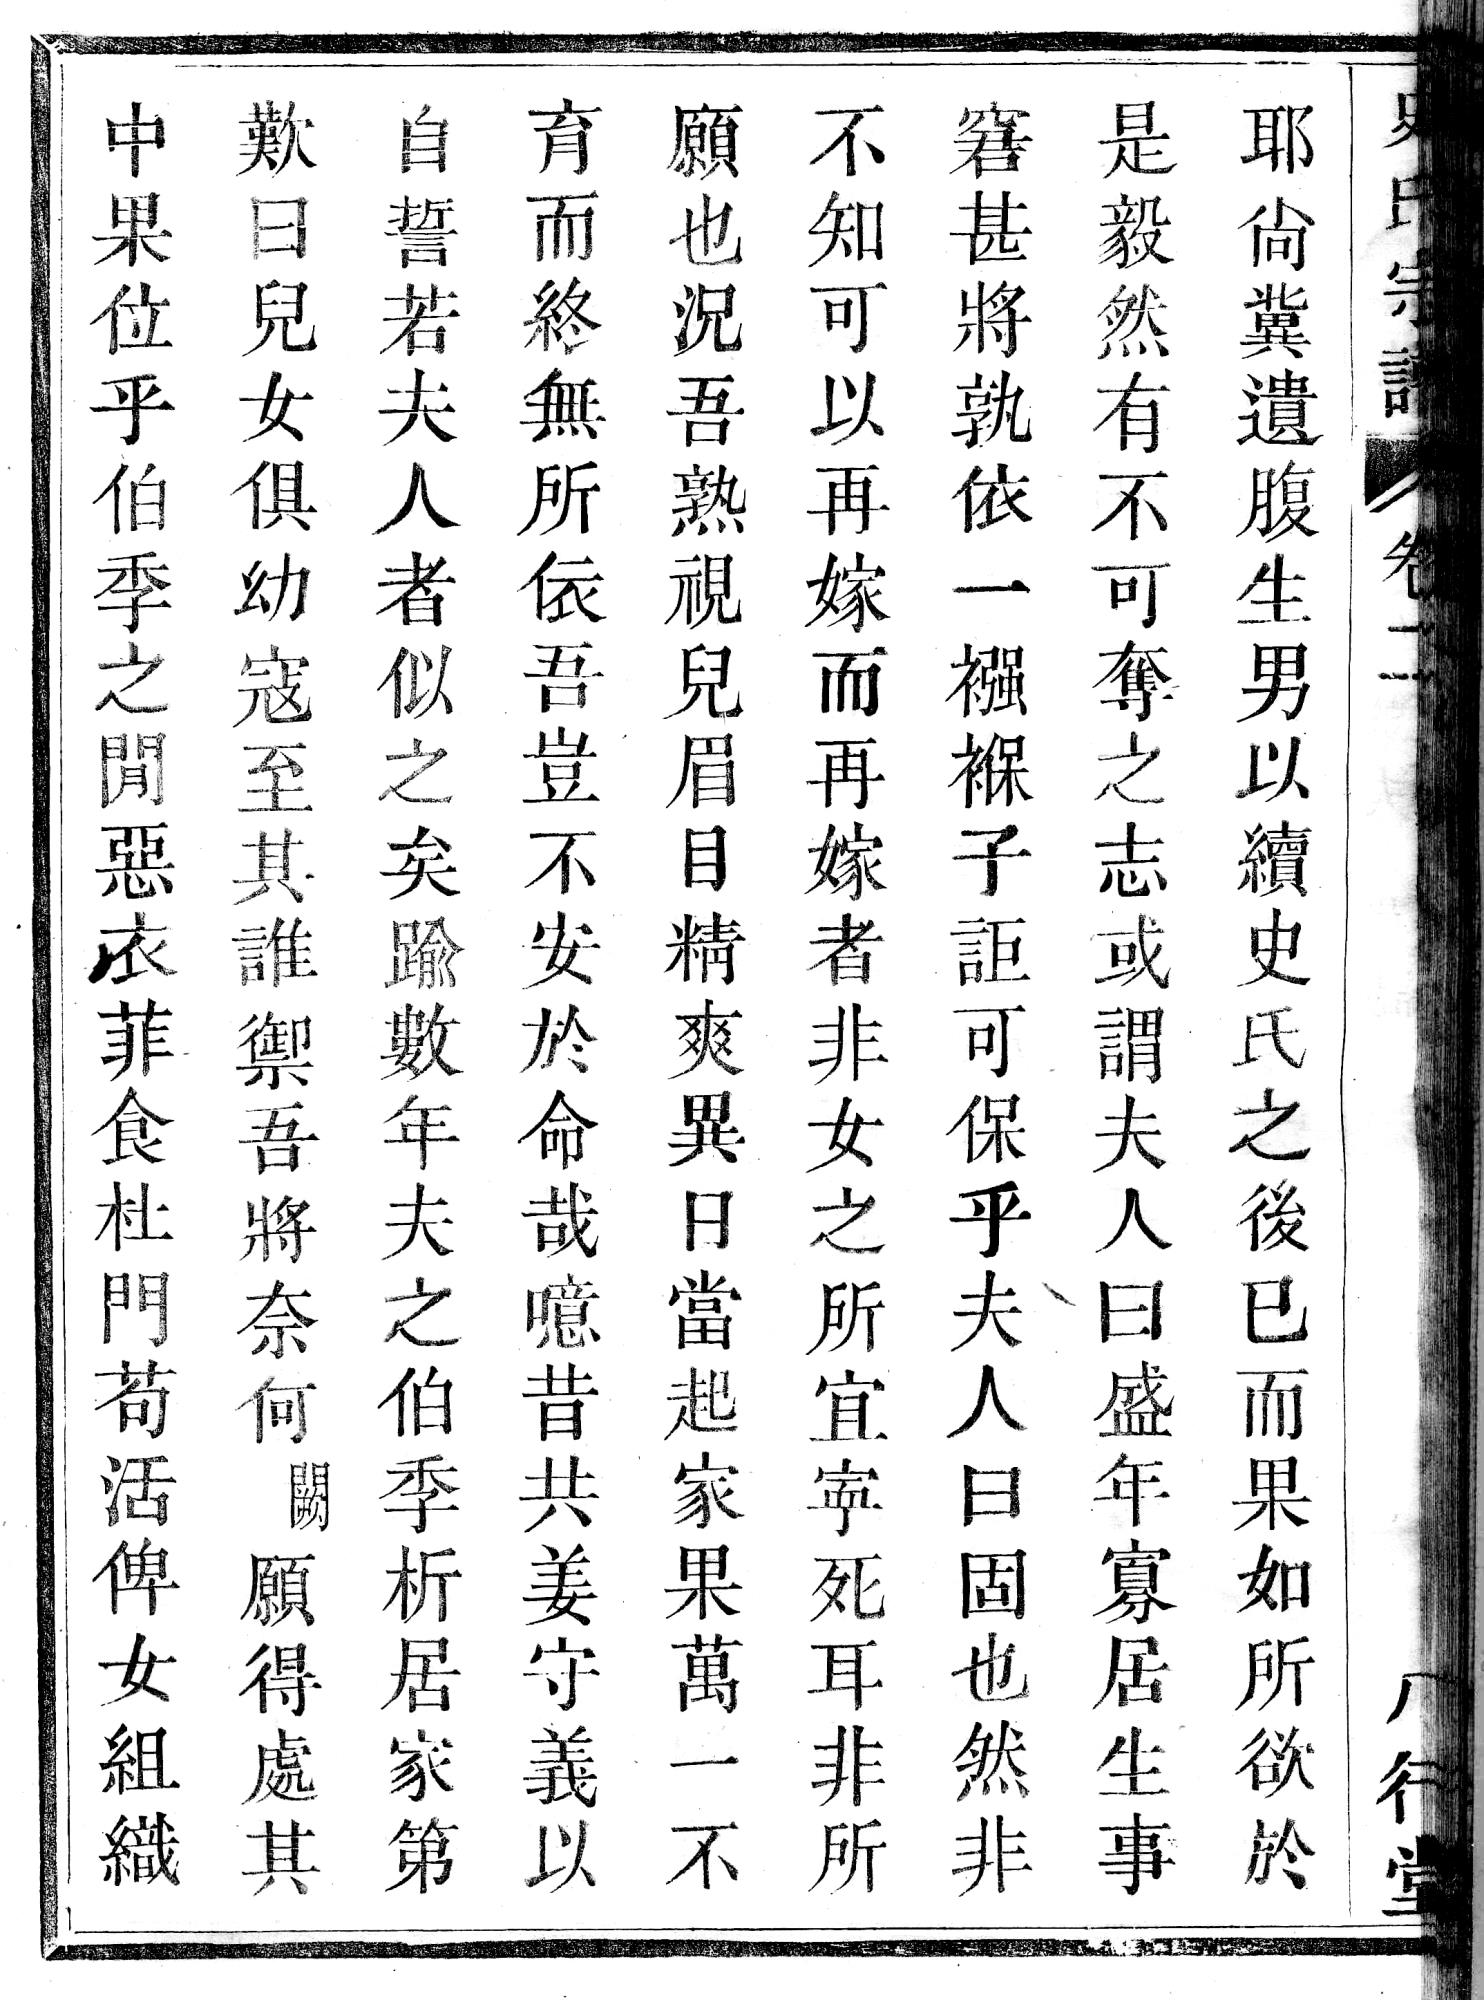 史氏宗譜 卷一 八行堂
耶尙冀遺腹生男以續史氏之後已而果如所欲於
是毅然有不可奪之志或謂夫人曰盛年寡居生事
窘甚將孰依一襁褓子詎可保乎夫人曰固也然非
不知可以再嫁而再嫁者非女之所宜寜死耳非所
願也況吾熟視兒眉目精爽異日當起家果萬一不
育而終無所依吾豈不安於命哉噫昔共姜守義以
自誓若夫人者似之矣踰數年夫之伯季析居家第
歎曰兒女俱幼寇至其誰禦吾將奈何闕願得處其
中果位乎伯季之閒惡衣菲食杜門苟活俾女組織